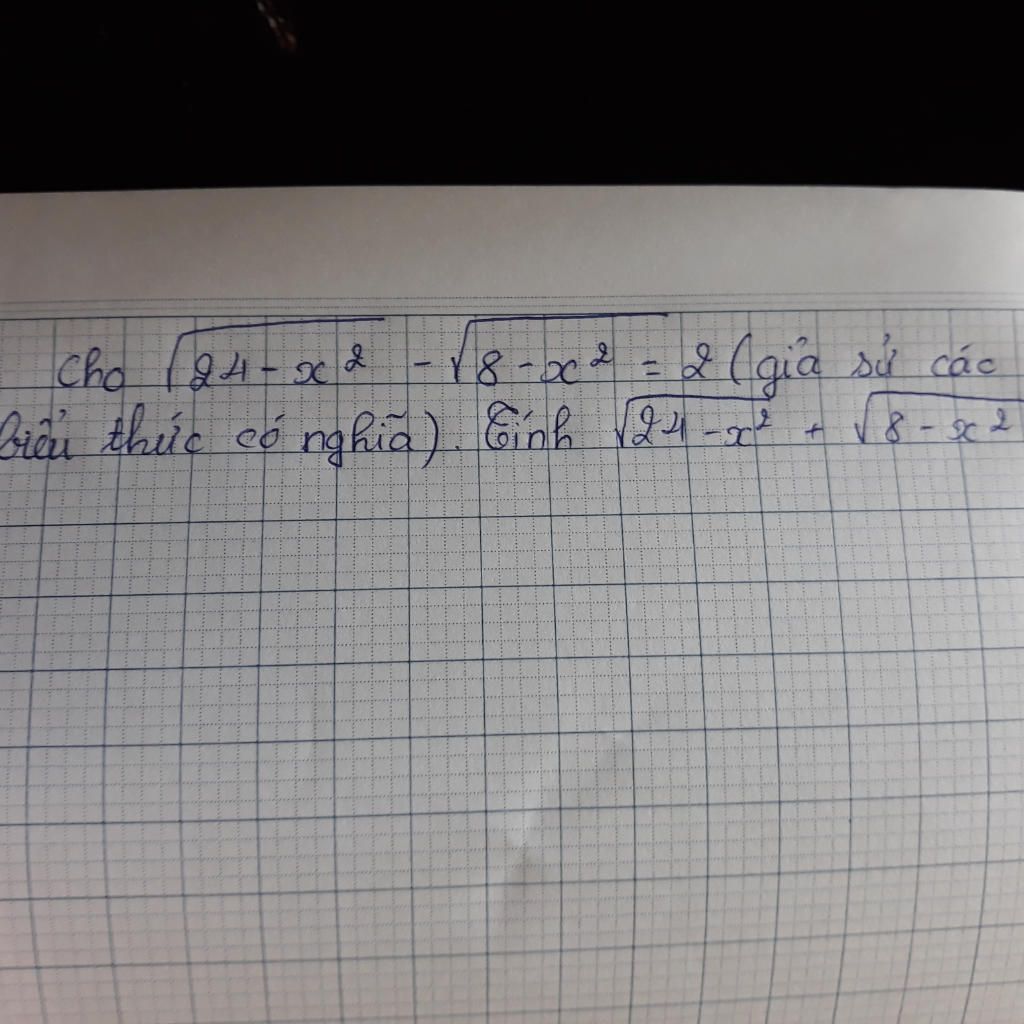 Cho √(24 - x²) - √(8 - x²) = 2 (giả sử các
biểu thức có nghĩa). Tính √(24 - x²) + √(8 - x²)